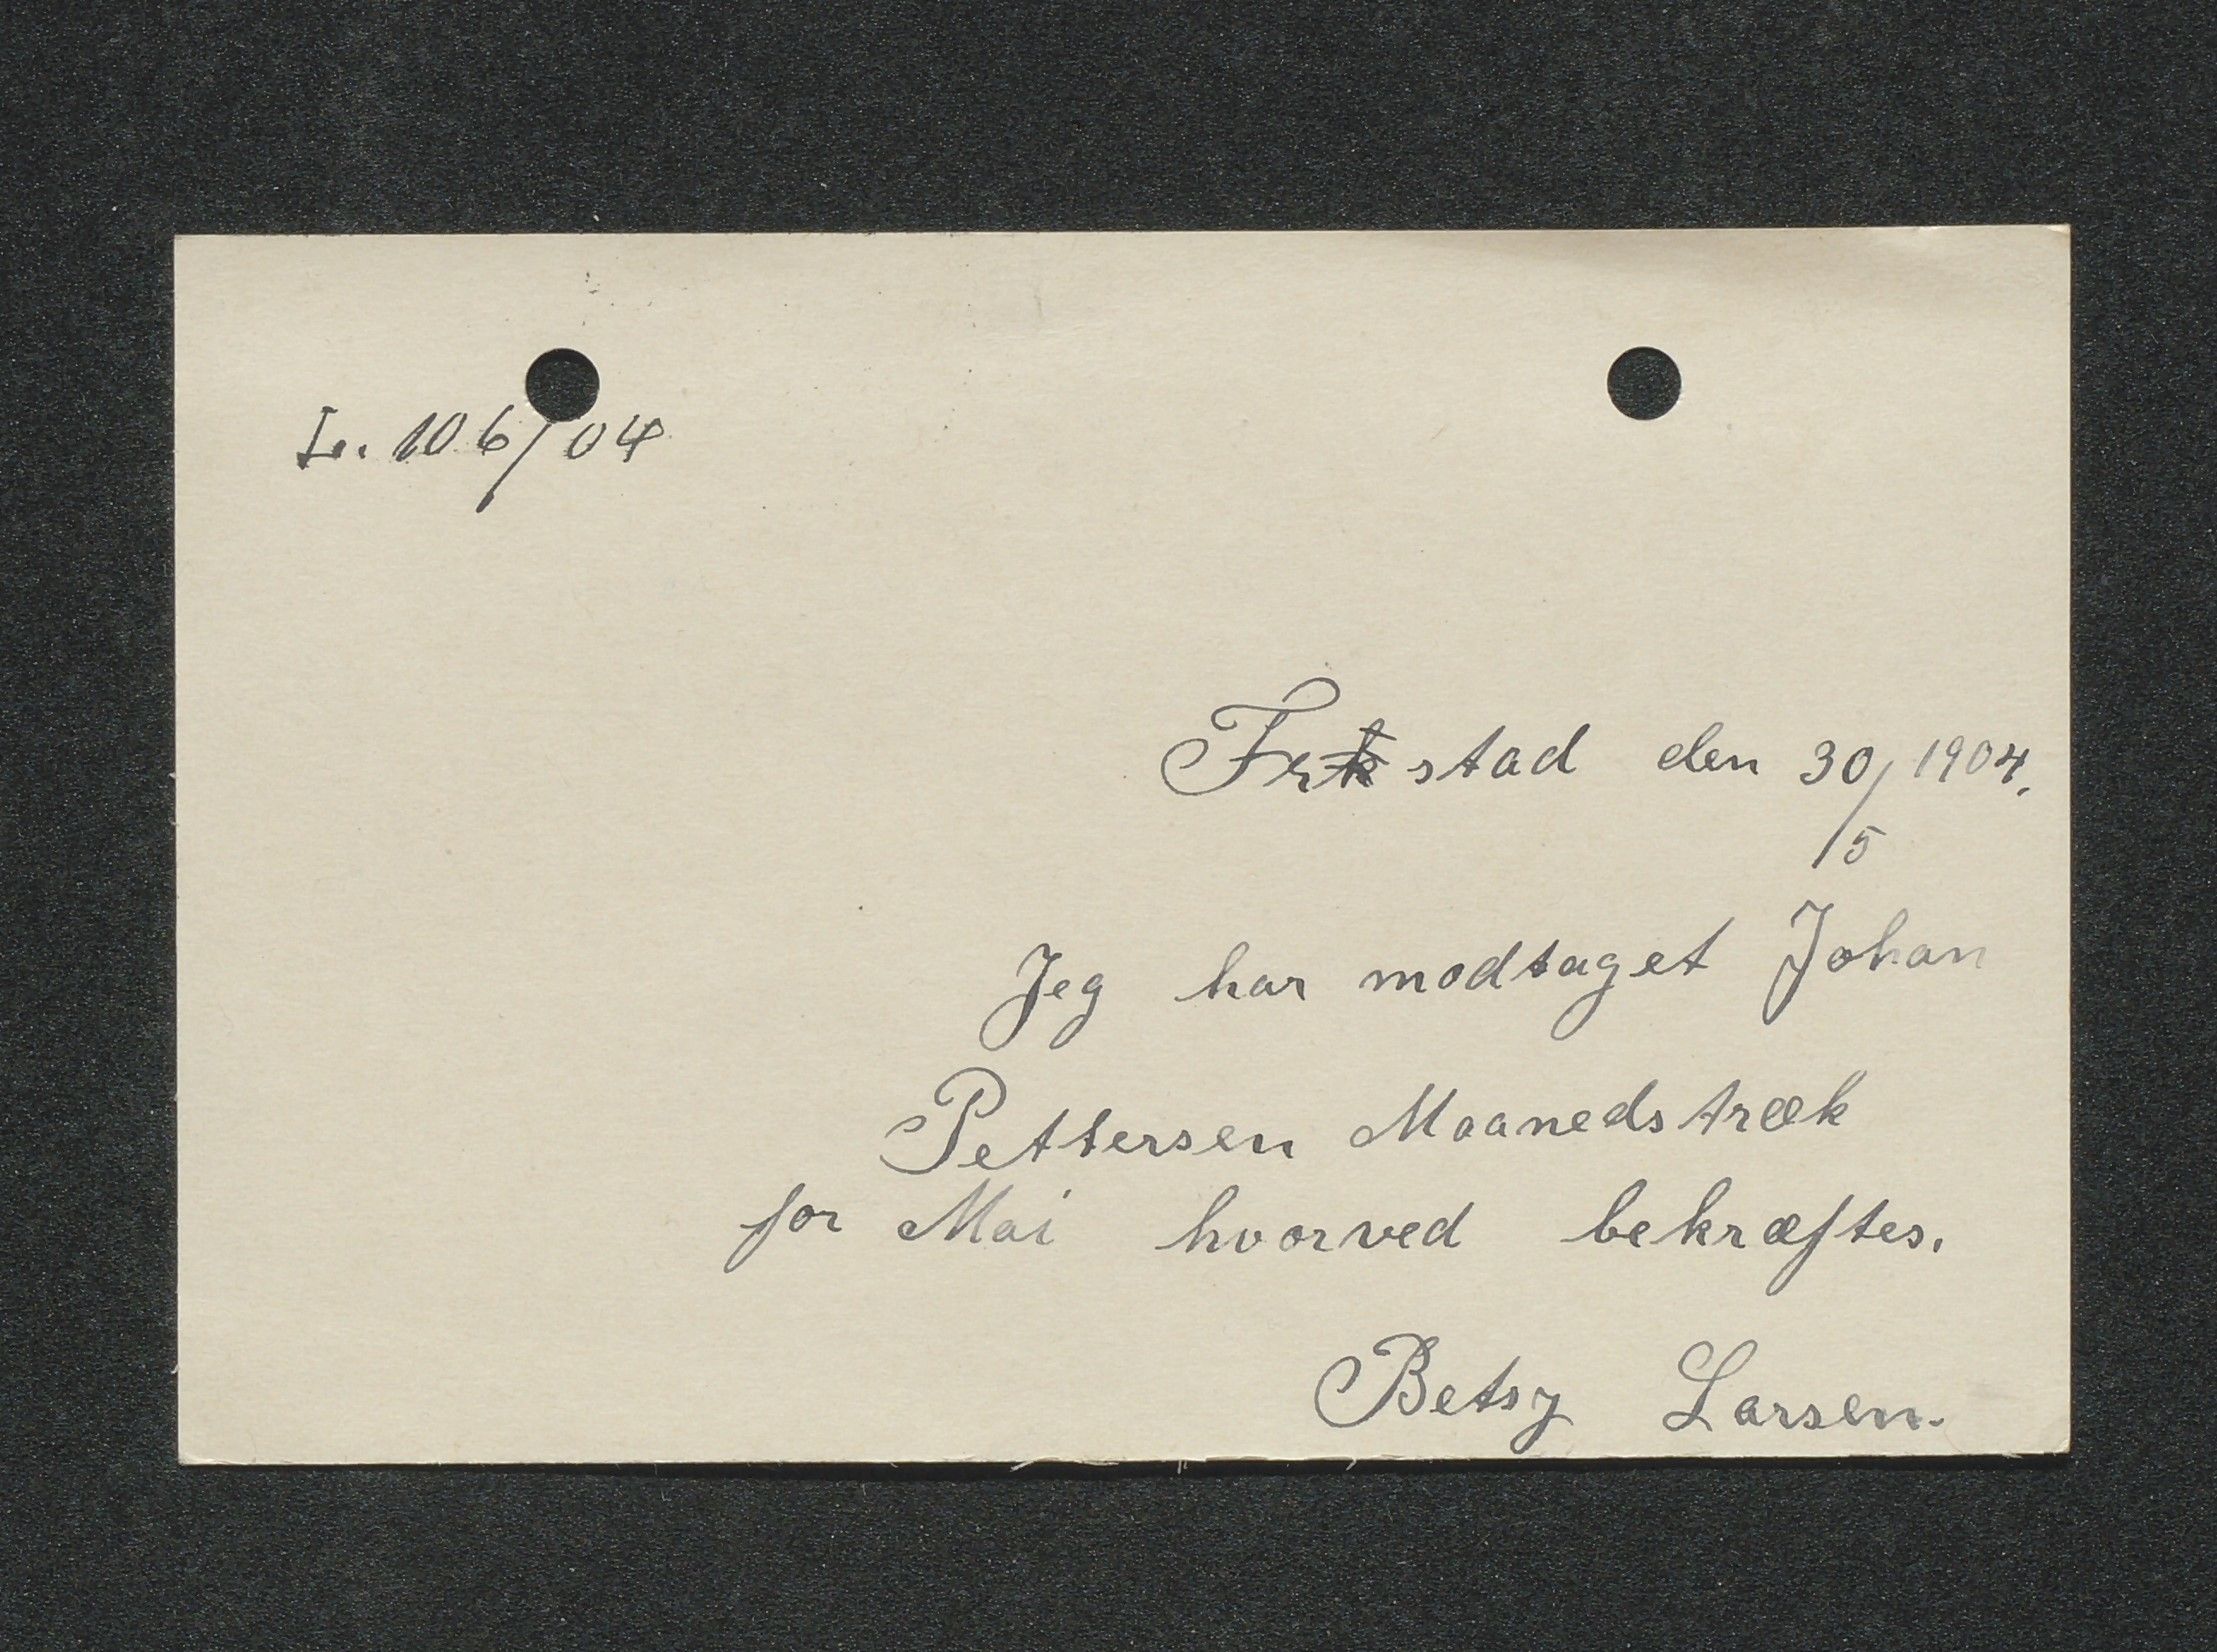 L. 106/04
Frkstad den 30/5 1904.
Jeg har modtaget Johan
Pettersen Maanedstræk
for Mai hvorved bekræftes.
Betsy Larsen.